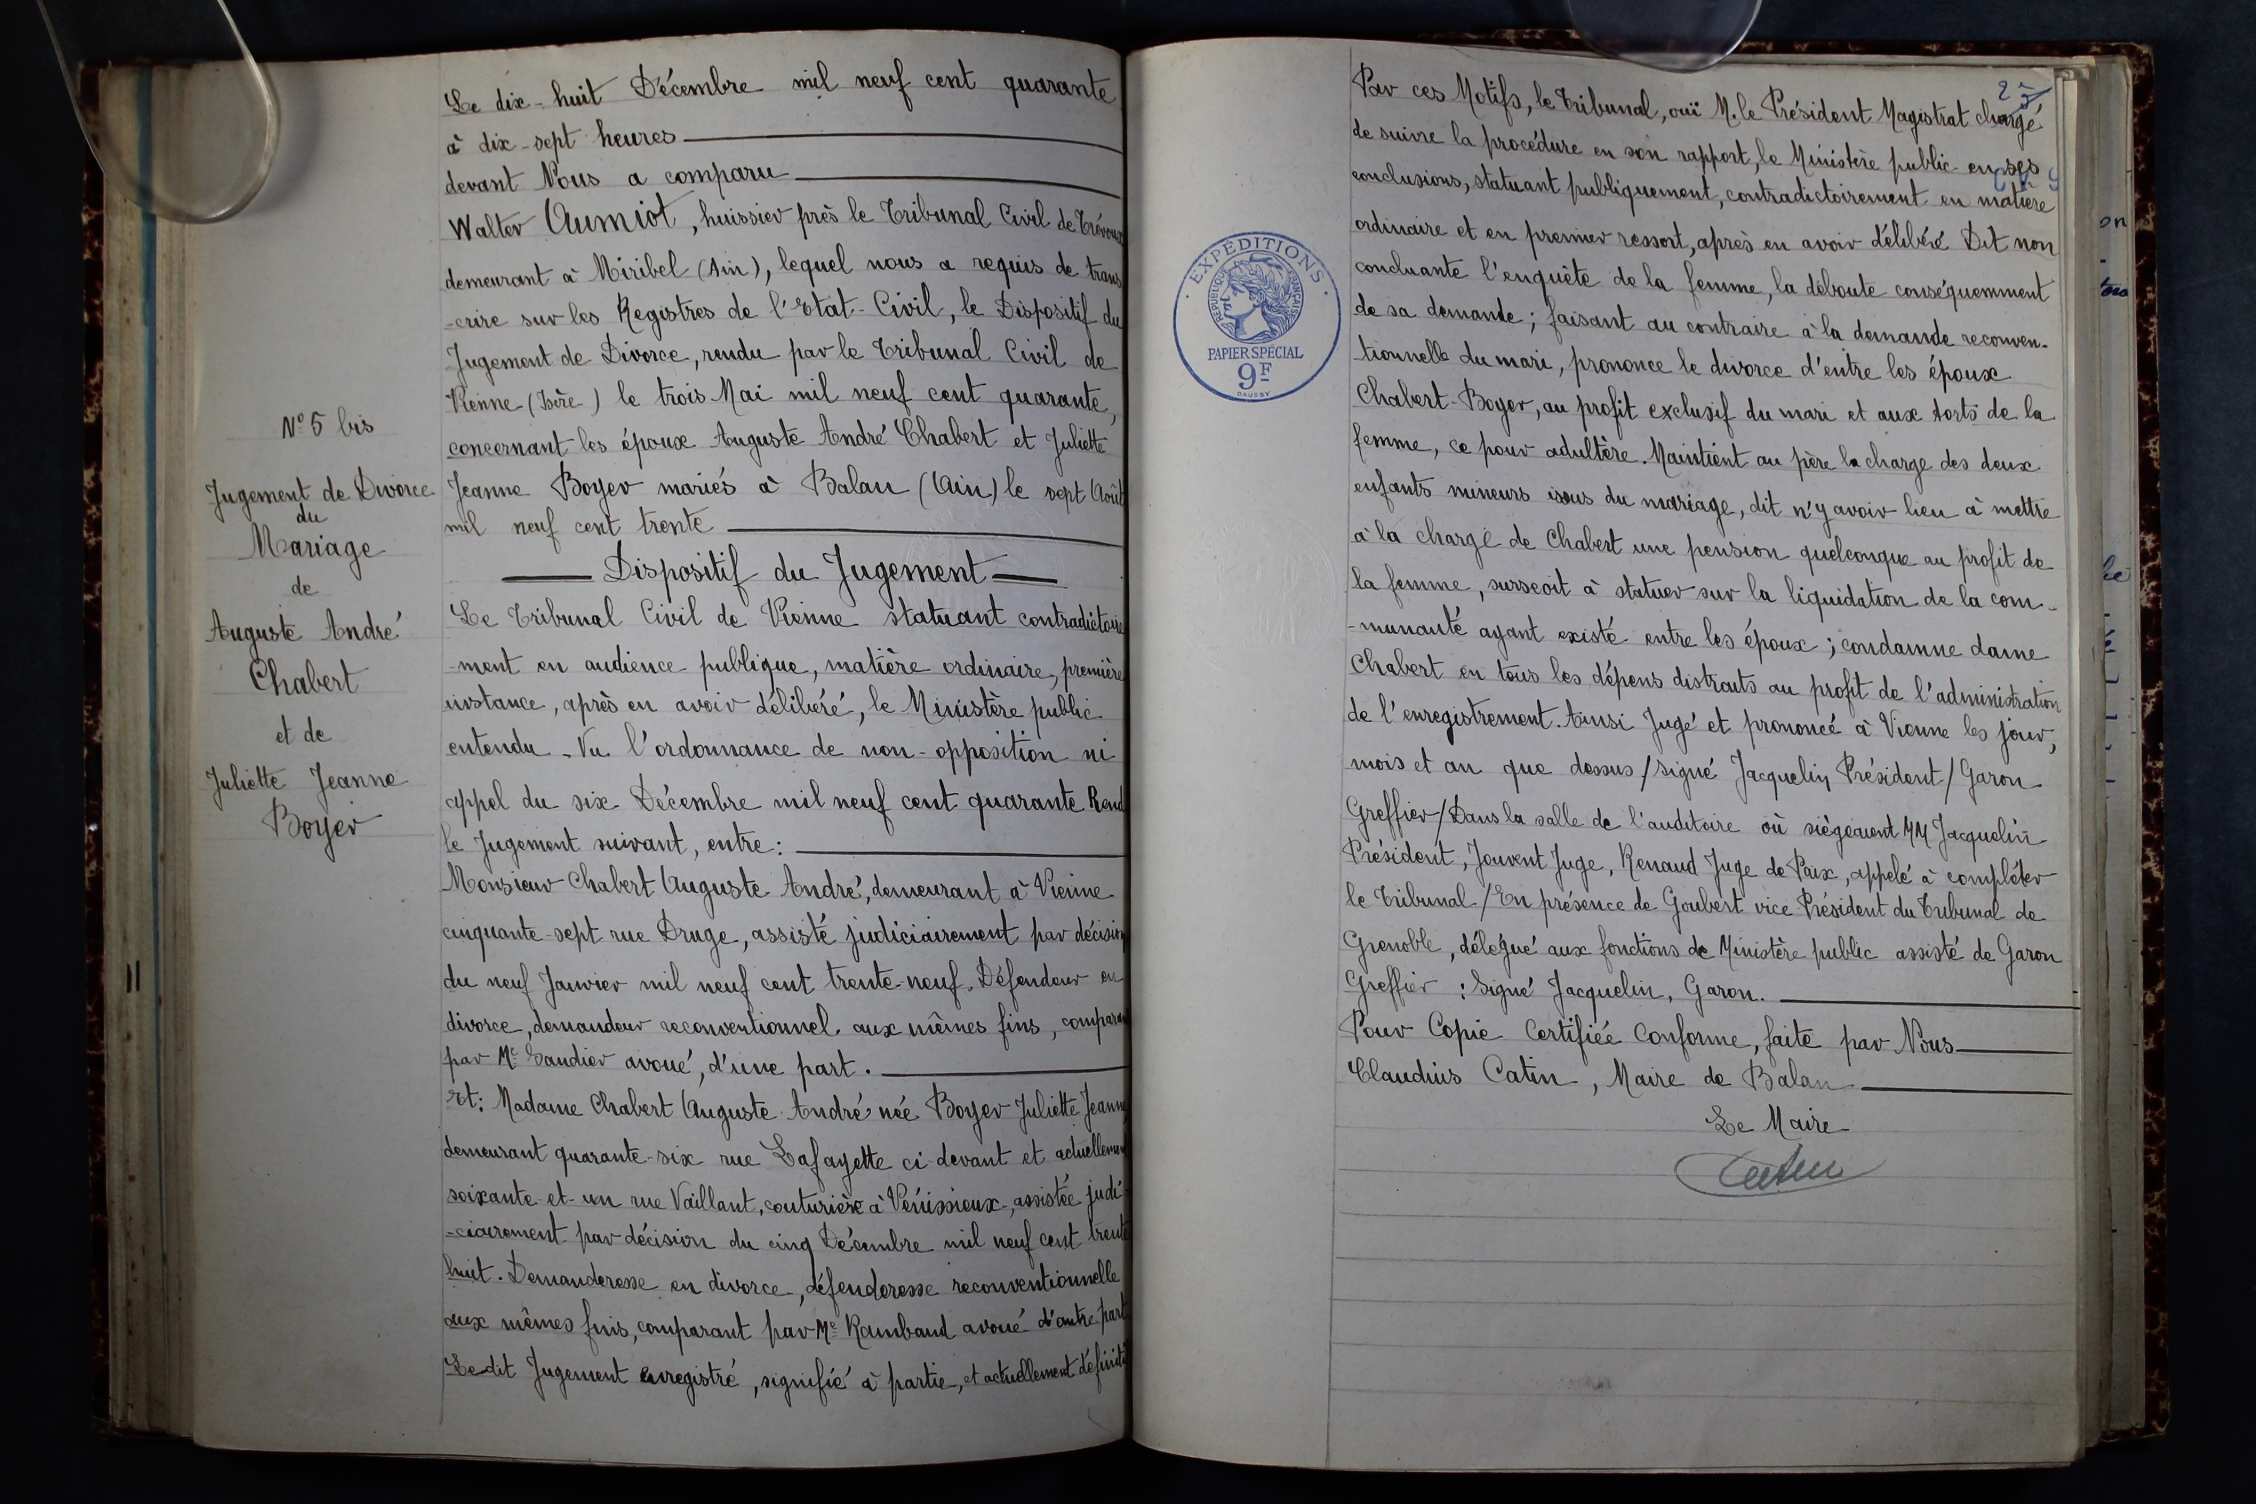 N° 5 bis
Jugement de Divorce
du
Mariage
de
Auguste André
Chabert
et de
Juliette Jeanne
Boyer
Le dix-huit Décembre mil neuf cent quarante
à dix-sept heures
devant Nous a comparu
Walter Aumiot, huissier près le Tribunal Civil de Trévoux
demeurant à Miribel (Ain), lequel nous a requis de trans
-crire sur les Registres de l'Etat-Civil, le Dispositif du
Jugement de Divorce, rendu par le Tribunal Civil de
Vienne (Isère) le trois Mai mil neuf cent quarante,
concernant les époux Auguste André Chabert et Juliette
Jeanne Boyer mariés à Balan (Ain) le sept Août
mil neuf cent trente
Dispositif du Jugement
Le Tribunal Civil de Vienne statuant contradictoire
-ment en audience publique, matière ordinaire, première
instance, après en avoir délibéré, le Ministère public
entendu. Vu l'ordonnance de non-opposition ni
appel du six Décembre mil neuf cent quarante Rend
le Jugement suivant, entre:
Monsieur Chabert Auguste André, demeurant à Vienne
cinquante-sept rue Druge, assisté judiciairement par décision
du neuf Janvier mil neuf cent trente-neuf. Défendeur en
divorce, demandeur reconventionnel aux mêmes fins, comparant
par Me Gaudier avoué, d'une part.
Et: Madame Chabert Auguste André née Boyer Juliette Jeanne
demeurant quarante-six rue Lafayette ci-devant et actuellement
soixante-et-un rue Vaillant, couturière à Vénissieux, assistée judi
-ciairement par décision du cinq Décembre mil neuf cent trente
huit. Demanderesse en divorce, défenderesse reconventionnelle
aux mêmes fins, comparant par Me Rambaud avoué d'autre part
Le dit Jugement enregistré, signifié à partie, et actuellement définitif
25
Par ces Motifs, le Tribunal, ouï M. le Président Magistrat chargé
de suivre la procédure en son rapport, le Ministère public en ses
conclusions, statuant publiquement, contradictoirement en matière
ordinaire et en premier ressort, après en avoir délibéré Dit non
concluante l'enquête de la femme, la déboute conséquemment
de sa demande; faisant au contraire à la demande reconven-
tionnelle du mari, prononce le divorce d'entre les époux
Chabert-Boyer, au profit exclusif du mari et aux torts de la
femme, ce pour adultère. Maintient au père la charge des deux
enfants mineurs issus du mariage, dit n'y avoir lieu à mettre
à la charge de Chabert une pension quelconque au profit de
la femme, surseoit à statuer sur la liquidation de la com-
-munauté ayant existé entre les époux; condamne dame
Chabert en tous les dépens distraits au profit de l'administration
de l'enregistrement. Ainsi Jugé et prononcé à Vienne les jour,
mois et an que dessus/signé Jacquelin Président/Garon
Greffier/Dans la salle de l'auditoire où siègeaient MM Jacquelin
Président, Jouvent Juge, Renaud Juge de Paix, appelé à compléter
le Tribunal/En présence de Goubert vice Président du Tribunal de
Grenoble, délégué aux fonctions de Ministère public assisté de Garon
Greffier: Signé Jacquelin, Garon.
Pour Copie Certifiée Conforme, faite par Nous
Claudius Catin, Maire de Balan
Le Maire
Catin
EXPÉDITIONS
RÉPUBLIQUE FRANÇAISE
PAPIER SPÉCIAL
9F
DAUSSY